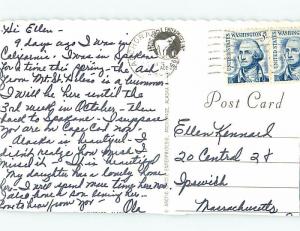 Hi Ellen -
9 days ago I was in
California. I was in Spokane
for a time this spring - the ash
from Mt St. Helens is a bummer
I will be here until the
3rd week in October - then
back to Spokane - I suppose
you are on Cape Cod now.
Alaska is beautiful - I
didn't realize how much I
missed it - It is beautiful
My daughter has a lovely home
here. I will spend more time here now
I also have a son living here
Love to hear from you -
Ola
Post Card
Ellen Kennard
20 Central St
Ipswich
Massachusetts